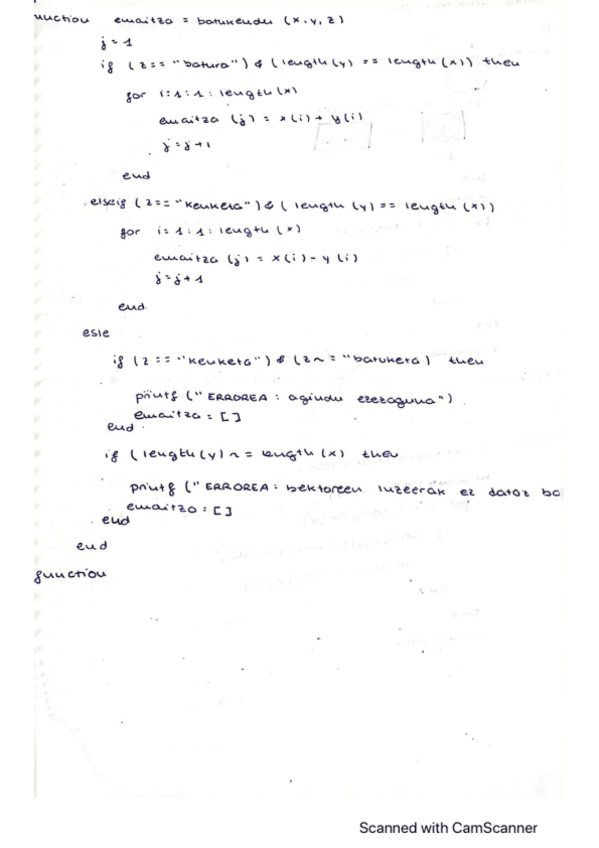 unction emaitza = batukendu (x,y,z)
j=1
if (z== "batura") & (length(y) == length(x)) then
for i=1:1:length(x)
emaitza (j) = x(i)+ y(i)
j=j+1
end
elseif (z== "kenketa") & ( length (y) == length (x))
for i=1:1:length(x)
emaitza (j) = x(i)-y(i)
j=j+1
end
esle
if (z == "kenketa") & (z~= "batuketa) then
printf ("ERROREA: agindu ezezaguna")
emaitza = []
end
if (length(y)~=length(x) then
printf ("ERROREA: bektoreen luzeerak ez datoz ba
emaitza = []
end
end
function
Scanned with CamScanner